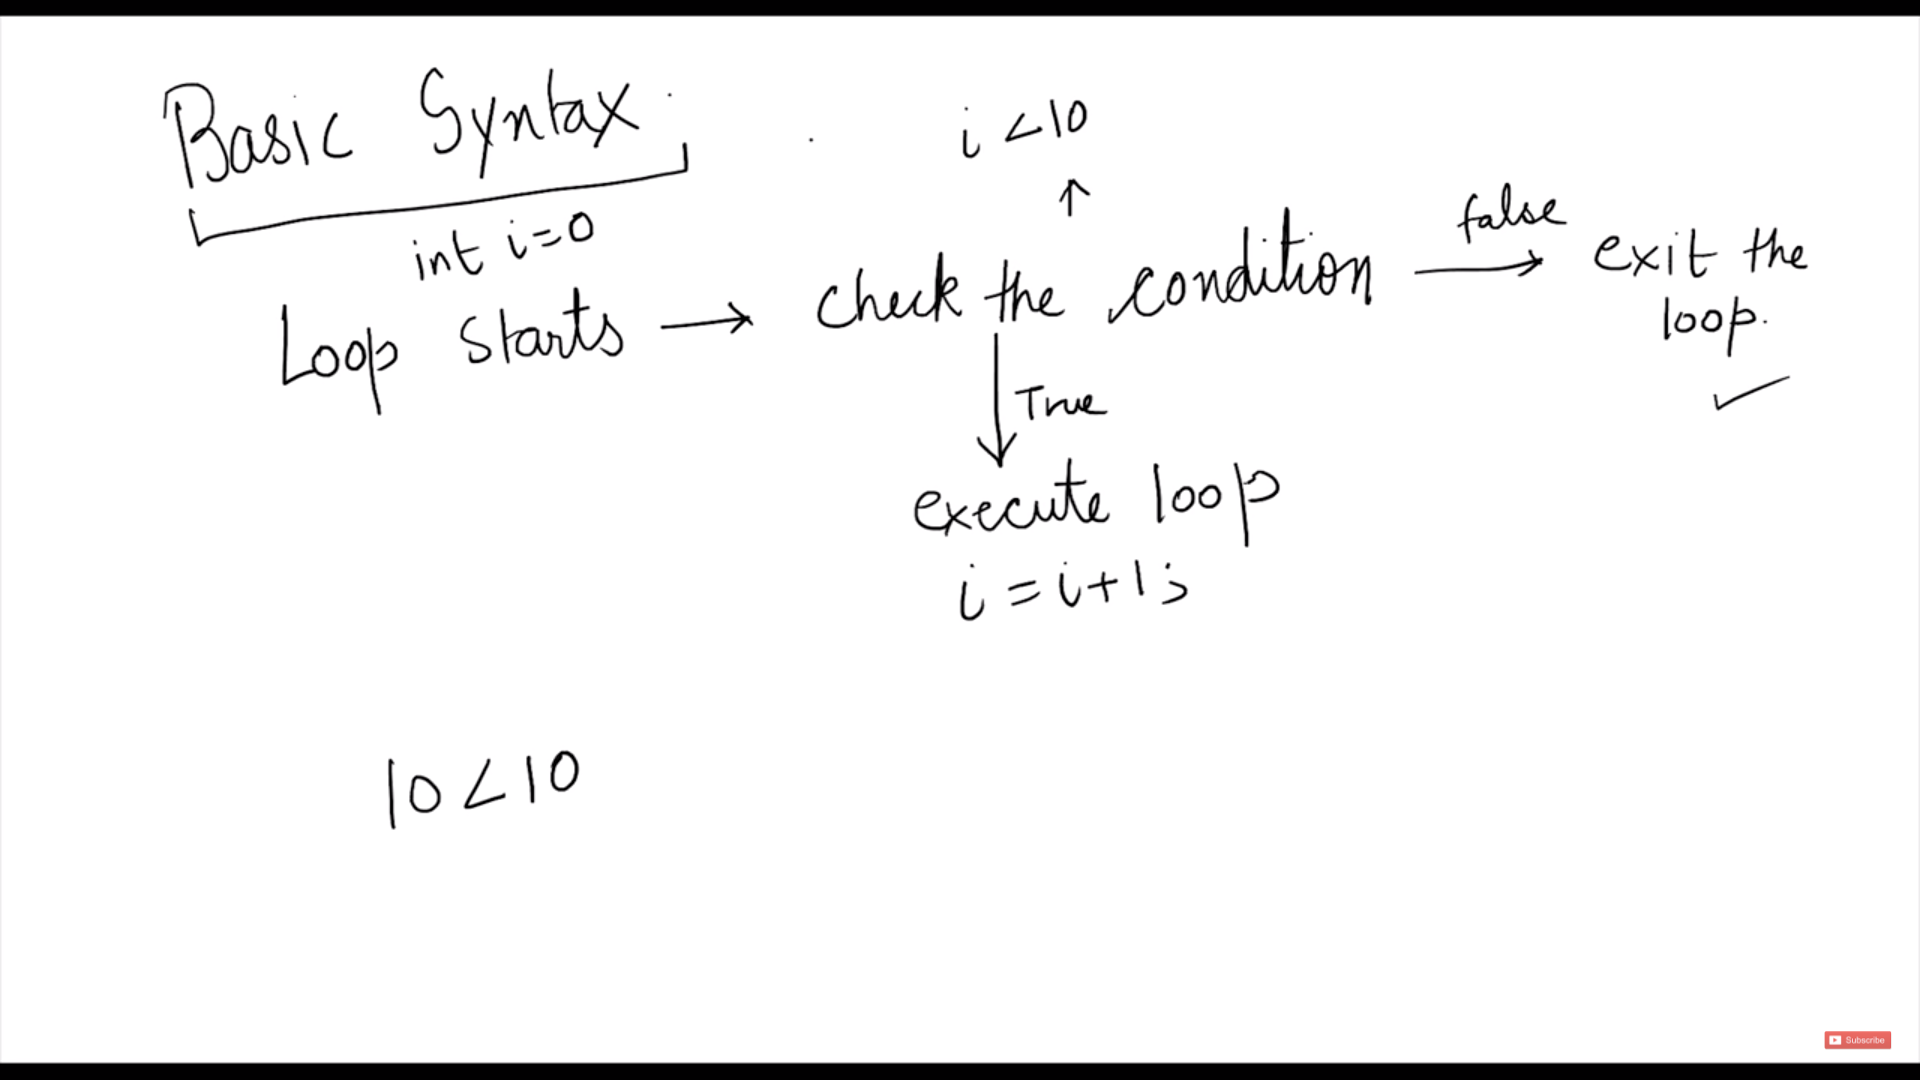 Basic Syntax
i <10
int i=0
Loop starts → check the condition false → exit the
loop.
True
execute loop
i = i+1;
10 < 10
Subscribe